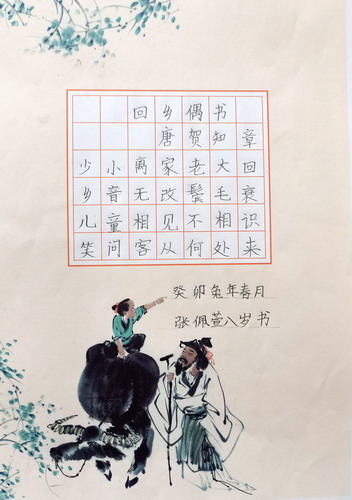 回乡偶书
唐贺知章
少小离家老大回
乡音无改鬓毛衰
儿童相见不相识
笑问客从何处来
癸卯兔年春月
张佩萱八岁书